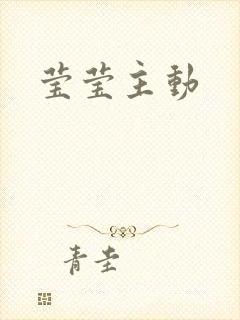 莹莹主动
青圭